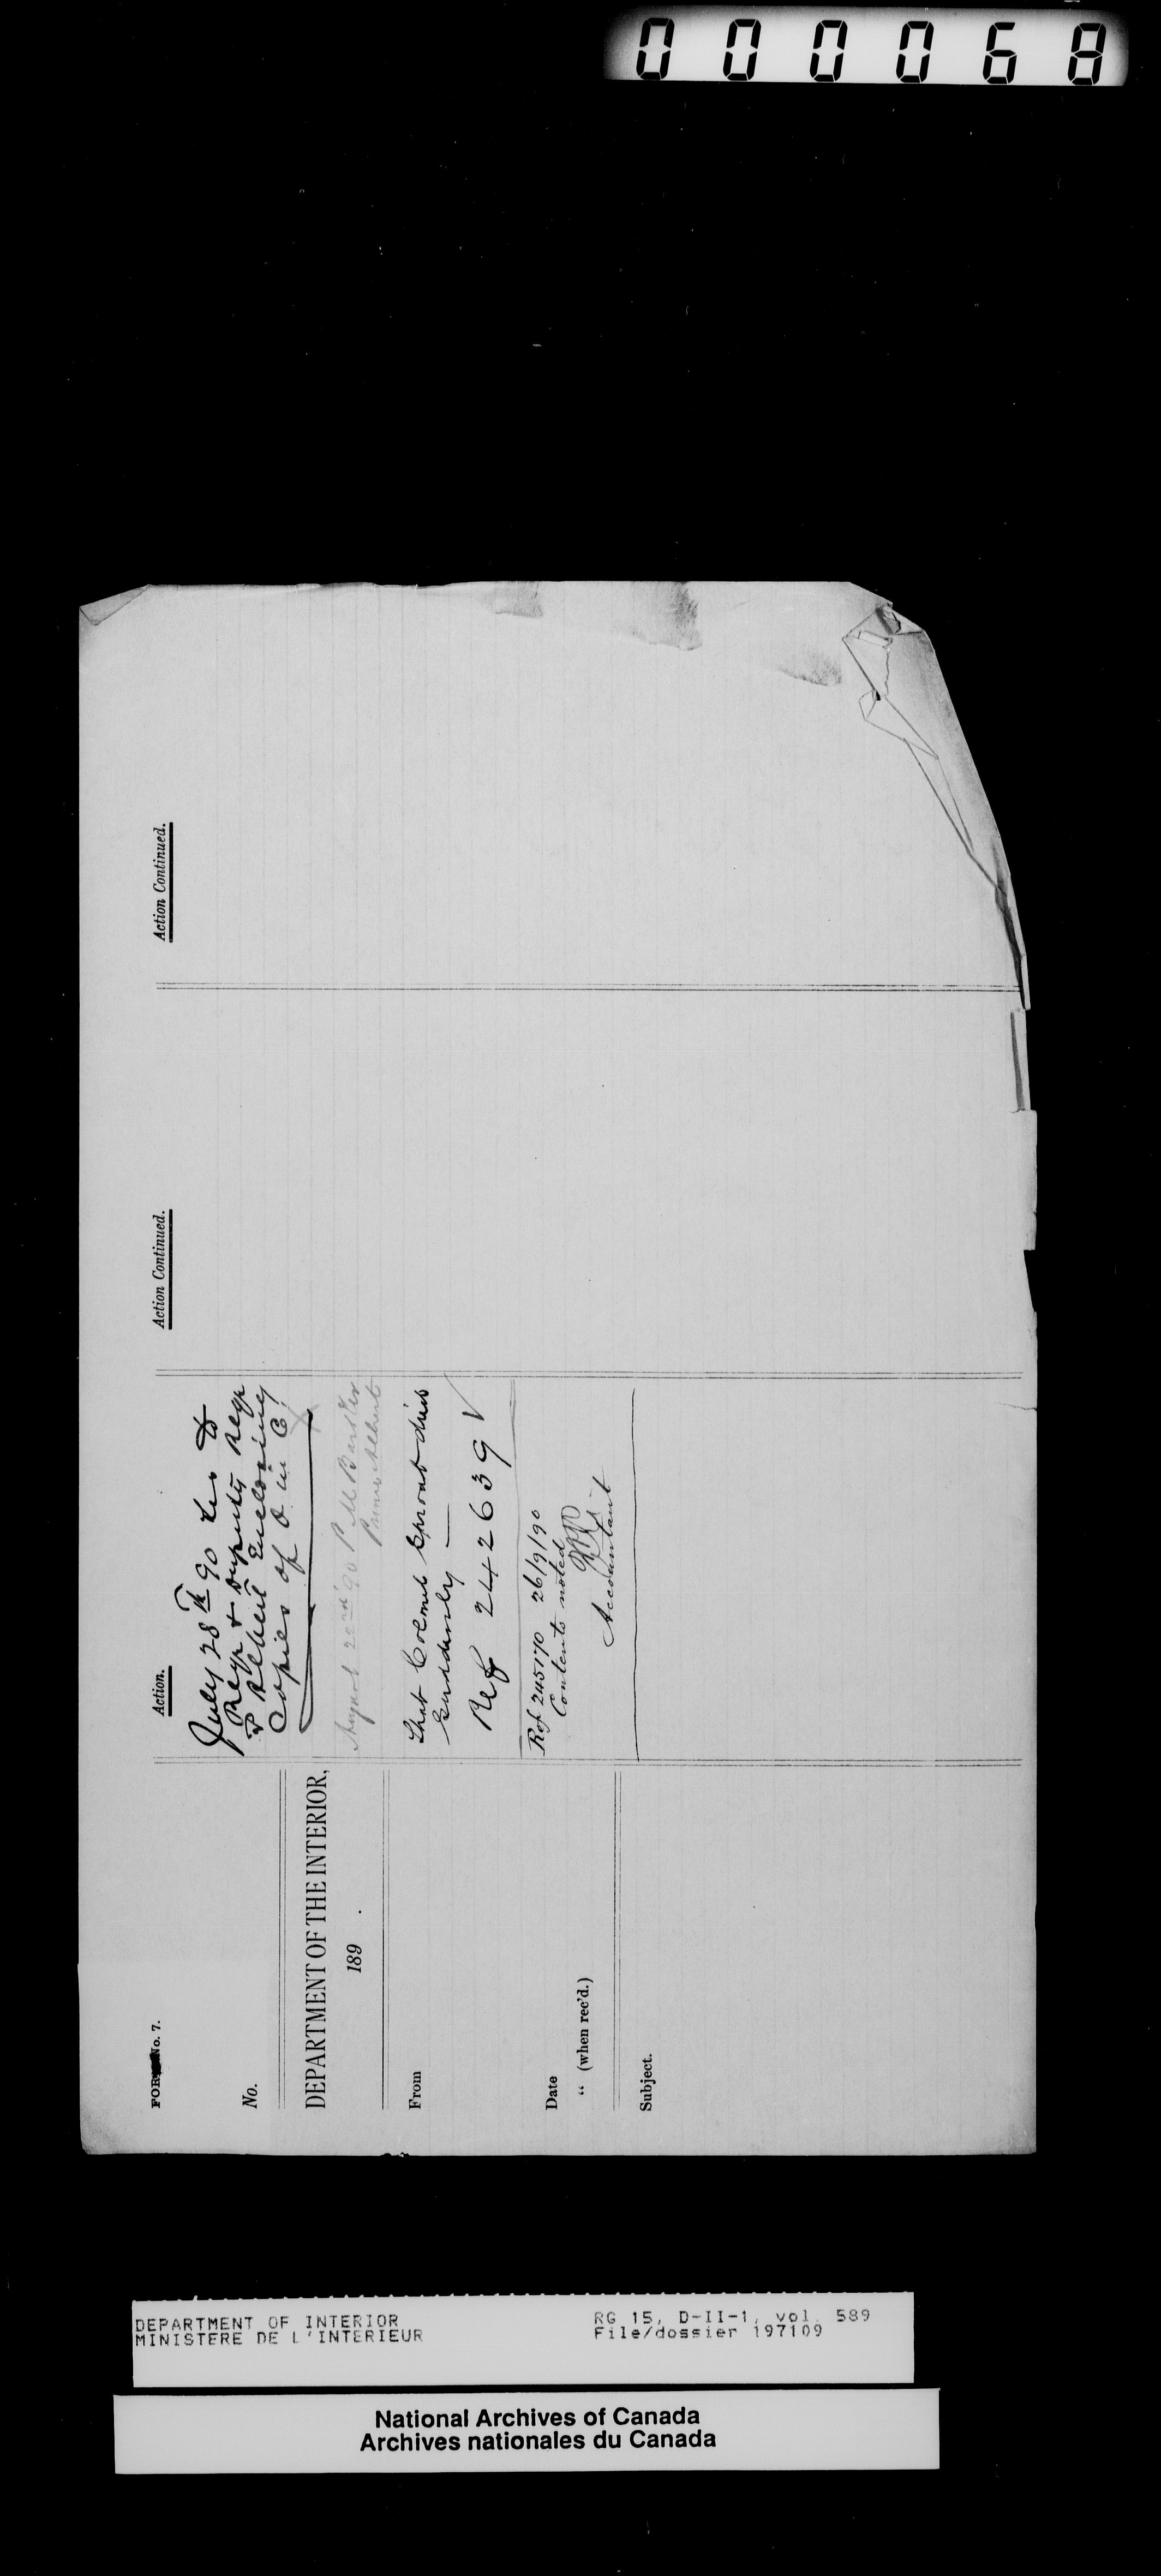 000068
FORM No. 7.
No.
DEPARTMENT OF THE INTERIOR,
189 .
From
Date
" (when rec'd.)
Subject.
Action.
July 28th 90 Ler to
Regr & Deputy Regr
P Albert Enclosing
Copies of O in C!
August 22nd 90 P M
Prince Albert
that Colonel Sproat died
Suddenly —
Ref 242639 ✓
Ref 245170 26/9/90
Contents noted
Accountant
Action Continued.
Action Continued.
DEPARTMENT OF INTERIOR
MINISTERE DE L'INTERIEUR
RG 15, D-II-1, vol. 589
File/dossier 197109
National Archives of Canada
Archives nationales du Canada